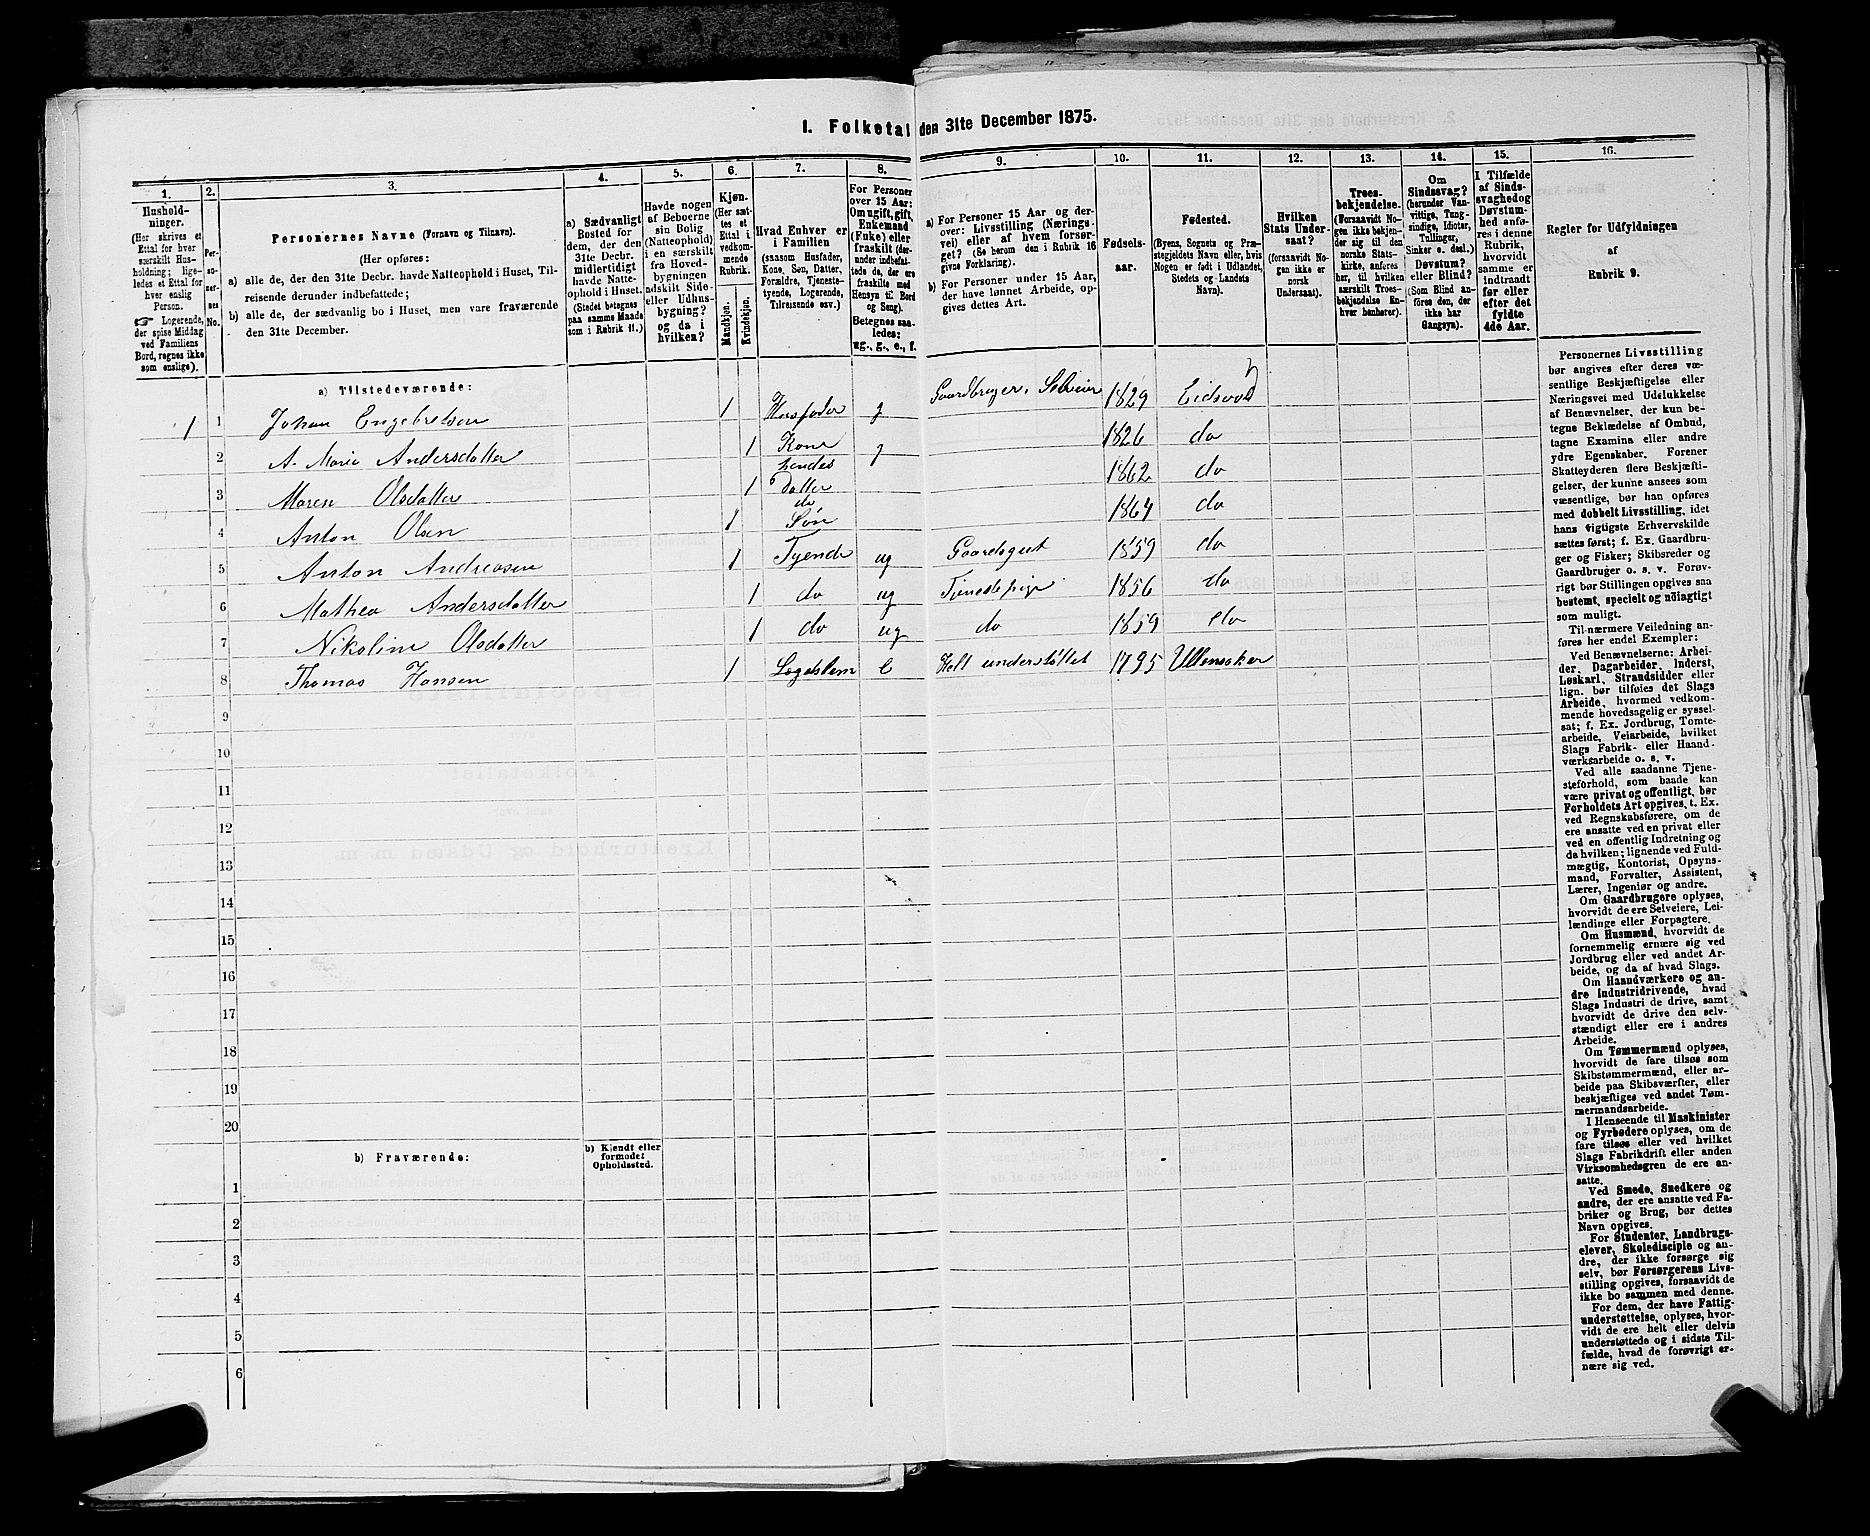 I. Folketal den 31te December 1875.
1. 2. 3. 4. 5. 6. 7. 8. 9. 10. 11. 12. 13. 14. 15. 16.
Hushold-
ninger.
(Her skrives et
Ettal for hver
særskilt Hus-
holdning; lige-
ledes et Ettal for
hver enslig
Person.
☞ Logerende,
der spise Middag
ved Familiens
Bord, regnes ikke
som enslige).
Per-
so-
ner-
nes
No.
Personernes Navne (Fornavn og Tilnavn).
(Her opføres:
a) alle de, der den 31te Decbr. havde Natteophold i Huset, Til-
reisende derunder indbefattede;
b) alle de, der sædvanlig bo i Huset, men vare fraværende
den 31te December.
a) Sædvanligt
Bosted for
dem, der den
31te Decbr.
midlertidigt
havde Natte-
ophold i Huset.
(Stedet betegnes
paa samme Maade
som i Rubrik 11.)
Havde nogen
af Beboerne
sin Bolig
(Natteophold)
i en særskilt
fra Hoved-
bygningen
adskilt Side-
eller Udhus-
bygning?
og da i
hvilken?
Kjøn.
(Her sæt-
tes et
Ettal i
vedkom-
mende
Rubrik.
Mandkjøn.
Kvindekjøn.
Hvad Enhver er
i Familien
(saasom Husfader,
Kone, Søn, Datter,
Forældre, Tjeneste-
tyende, Logerende,
Tilreisende osv.)
For Personer
over 15 Aar:
Om ugift, gift,
Enkemand
(Enke) eller
fraskilt (der-
under indbefat-
tede de, der ere
fraskilte med
Hensyn til Bord
og Seng).
Betegnes saa-
ledes:
ug., g., e., f.
a) For Personer 15 Aar og der-
over: Livsstilling (Nærings-
vei) eller af hvem forsør-
get? (Se herom den i Rubrik 16
givne Forklaring).
b) For Personer under 15 Aar,
der have lønnet Arbeide, op-
gives dettes Art.
Fødsels-
aar.
Fødested.
(Byens, Sognets og Præ-
stegjeldets Navn eller, hvis
Nogen er født i Udlandet,
Stedets og Landets
Navn).
Hvilken
Stats Under-
saat?
(forsaavidt No-
gen ikke er
norsk
Undersaat).
Troes-
bekjendelse.
(Forsaavidt No-
gen ikke bekjen-
der sig til den
norske Stats-
kirke, anføres
her, til hvilken
særskilt Troes-
bekjendelse En-
hver henhører).
Om
Sindssvag?
(herunder Van-
vittige, Tung-
sindige, Idioter,
Tullinger,
Sinker o. desl.)
Døvstum?
eller Blind?
(Som Blind an-
føres den, der
ikke har
Gangsyn).
I Tilfælde
af Sinds-
svaghed og
Døvstum-
hed anfø-
res i denne
Rubrik,
hvorvidt
samme er
indtraadt
før eller
efter det
fyldte
4de Aar.
Regler for Udfyldningen
af
Rubrik 9.
a) Tilstedeværende:
1 1 Johan Engebretsen 1 Husfader g Gaardbruger, Selveier 1829 Eidsvold
2 A. Marie Andersdatter 1 Kone g 1826 do
3 Maren Olsdatter 1 hendes Datter 1862 do
4 Anton Olsen 1 do Søn 1864 do
5 Anton Andreasen 1 Tyende ug Gaardsgut 1859 do
6 Mathea Andersdatter 1 do ug Tjenestepige 1856 do
7 Nikoline Olsdatter 1 do ug do 1859 do
8 Thomas Hansen 1 Lægdslem e Helt understøttet 1795 Ullensaker
9
10
11
12
13
14
15
16
17
18
19
20
b) Fraværende:
b) Kjendt eller
formodet
Opholdssted.
1
2
3
4
5
6
Personernes Livsstilling
bør angives efter deres væ-
sentlige Beskjæftigelse eller
Næringsvei med Udelukkelse
af Benævnelser, der kun be-
tegne Beklædelse af Ombud,
tagne Examina eller andre
ydre Egenskaber. Forener
Skatteyderen flere Beskjæfti-
gelser, der kunne ansees som
væsentlige, bør han opføres
med dobbelt Livsstilling, idet
hans vigtigste Erhvervskilde
sættes først; f. Ex. Gaardbru-
ger og Fisker; Skibsreder og
Gaardbruger o. s. v. Forøv-
rigt bør Stillingen opgives saa
bestemt, specielt og nøiagtigt
som muligt.
Til nærmere Veiledning an-
føres her endel Exempler:
Ved Benævnelserne: Arbei-
der, Dagarbeider, Inderst,
Løskarl, Strandsidder eller
lign. bør tilføies det Slags
Arbeide, hvormed vedkom-
mende hovedsagelig er syssel-
sat; f. Ex. Jordbrug, Tomte-
arbeide, Veiarbeide, hvilket
Slags Fabrik- eller Haand-
værksarbeide o. s. v.
Ved alle saadanne Tjene-
steforhold, som baade kan
være privat og offentligt, bør
Forholdets Art opgives, t. Ex.
ved Regnskabsførere, om de
ere ansatte ved en privat eller
ved en offentlig Indretning og
da hvilken; lignende ved Fuld-
mægtig, Kontorist, Opsyns-
mand, Forvalter, Assistent,
Lærer, Ingeniør og andre.
Om Gaardbrugere oplyses,
hvorvidt de ere Selveiere, Lei-
lændinge eller Forpagtere.
Om Husmænd, hvorvidt de
fornemmelig ernære sig ved
Jordbrug eller ved andet Ar-
beide, og da af hvad Slags.
Om Haandværkere og an-
dre Industridrivende, hvad
Slags Industri de drive, samt
hvorvidt de drive den selv-
stændigt eller ere i andres
Arbeide.
Om Tømmermænd oplyses,
hvorvidt de fare tilsøs som
Skibstømmermænd, eller ar-
beide paa Skibsværfter, eller
beskjæftiges ved andet Tøm-
mermandsarbeide.
I Henseende til Maskinister
og Fyrbødere oplyses, om de
fare tilsøs eller ved hvilket
Slags Fabrikdrift eller anden
Virksomhedsgren de ere an-
satte.
Ved Smede, Snedkere og
andre, der ere ansatte ved Fa-
briker og Brug, bør dettes
Navn opgives.
For Studenter, Landbrugs-
elever, Skoledisciple og an-
dre, der ikke forsørge sig
selv, bør Forsørgerens Livs-
stilling opgives, forsaavidt de
ikke bo sammen med denne.
For dem, der have Fattig-
understøttelse, oplyses, hvor-
vidt de ere helt eller delvis
understøttede og i sidste Til-
fælde, hvad de forøvrigt er-
nære sig ved.